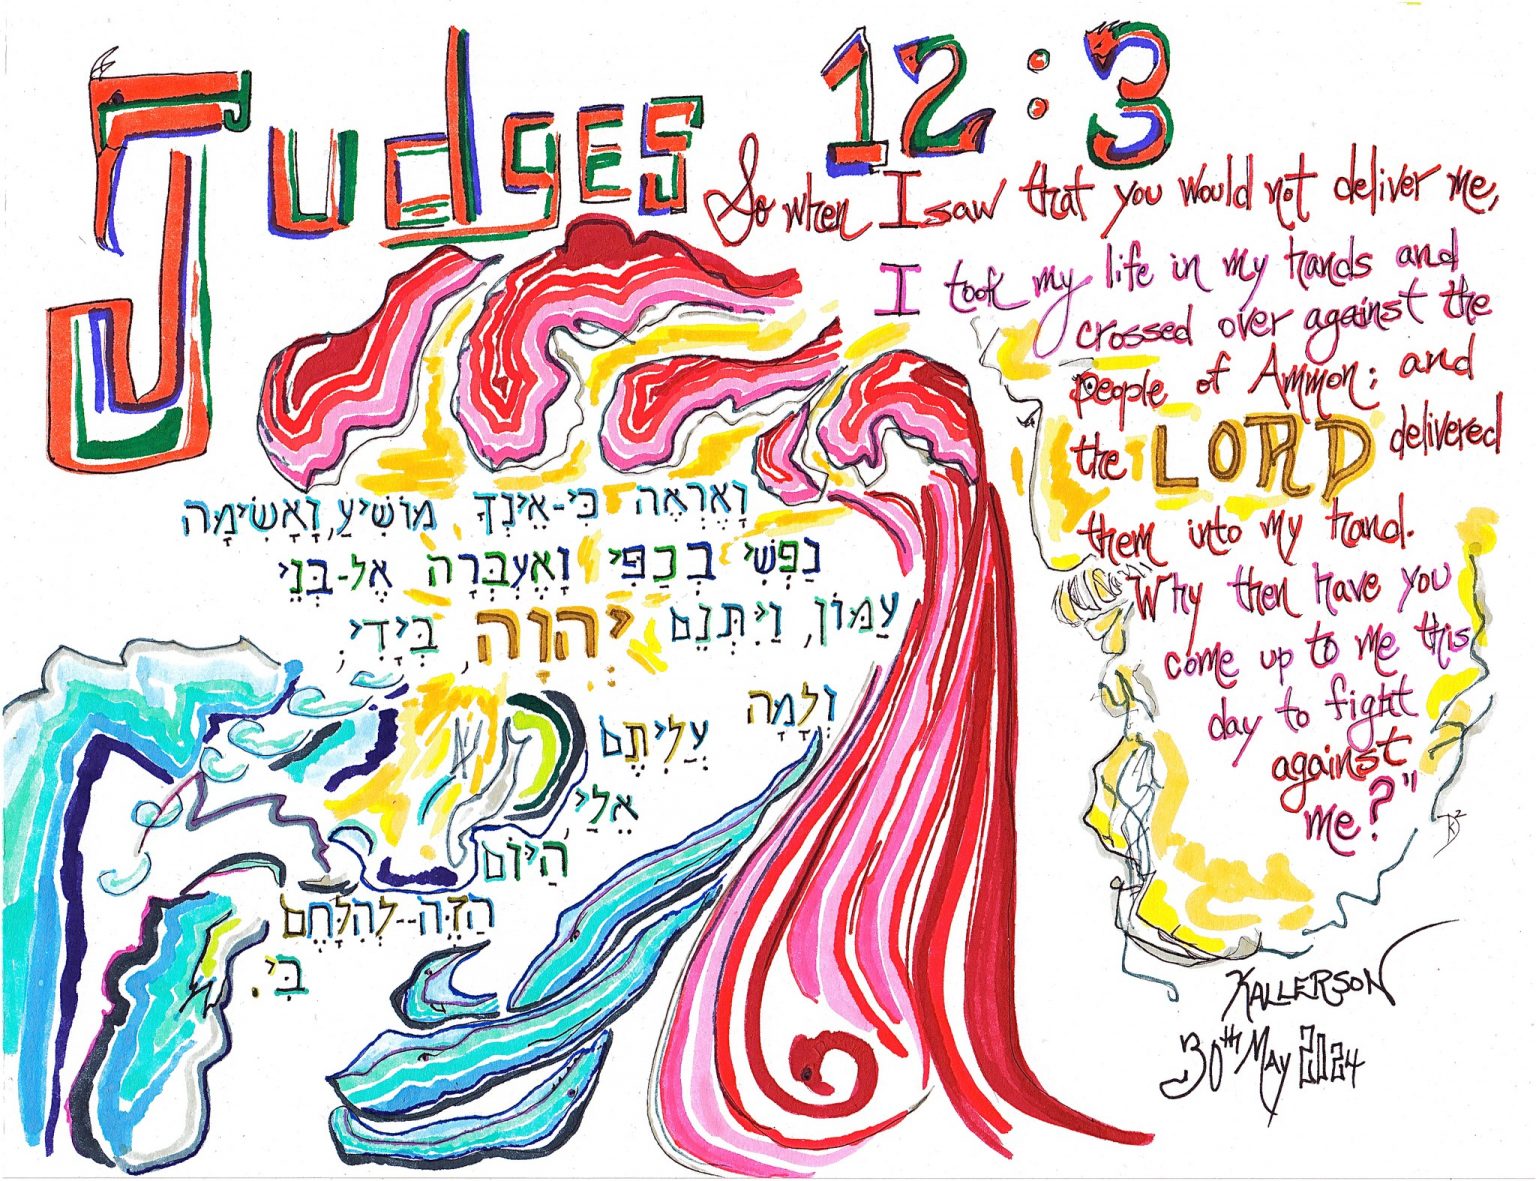 Judges 12:3
So when I saw that you would not deliver me,
I took my life in my hands and
crossed over against the
people of Ammon; and
the LORD delivered
them into my hand.
Why then have you
come up to me this
day to fight
against
me?"
וָאֶרְאֶה כִּי-אֵינְךָ מוֹשִׁיעַ, וָאָשִׂימָה
נַפְשִׁי בְכַפִּי וָאֶעְבְּרָה אֶל-בְּנֵי
עַמּוֹן, וַיִּתְּנֵם יְהוָה, בְּיָדִי;
וְלָמָה
עֲלִיתֶם
אֵלַי,
הַיּוֹם
הַזֶּה--לְהִלָּחֶם
בִּי.
KALLERSON
30th May 2024